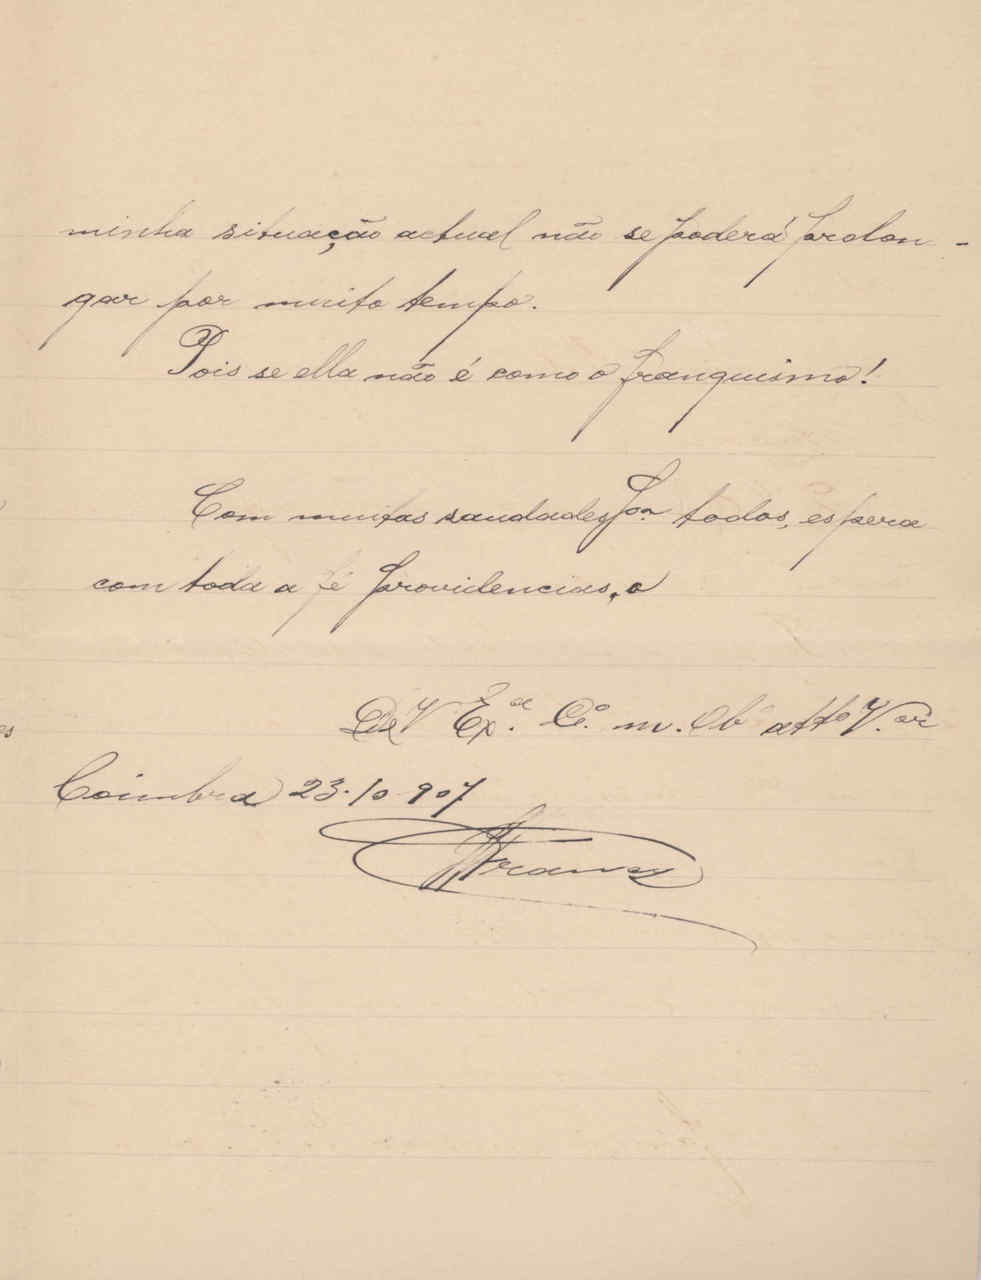 minha situação actual não se poderá prolon-
gar por muito tempo.
Pois se ella não é como o franquismo!
Com muitas saudades pª todos, espera
com toda a fé providencias, o
De V Exª. Cº. m. Obº attº V.ºr
Coimbra 23-10-907